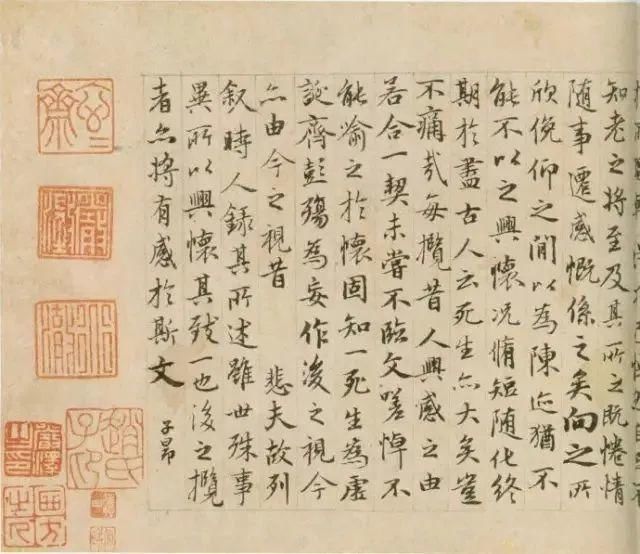 知老之將至及其所之既惓情
随事遷感慨係之矣向之所
欣俛仰之閒以為陳迹猶不
能不以之興懷况脩短随化終
期於盡古人云死生亦大矣豈
不痛哉每攬昔人興感之由
若合一契未嘗不臨文嗟悼不
能喻之於懷固知一死生為虛
誕齊彭殤為妄作後之視今
亦由今之視昔 悲夫故列
叙時人錄其所述雖世殊事
異所以興懷其致一也後之攬
者亦將有感於斯文
子昂